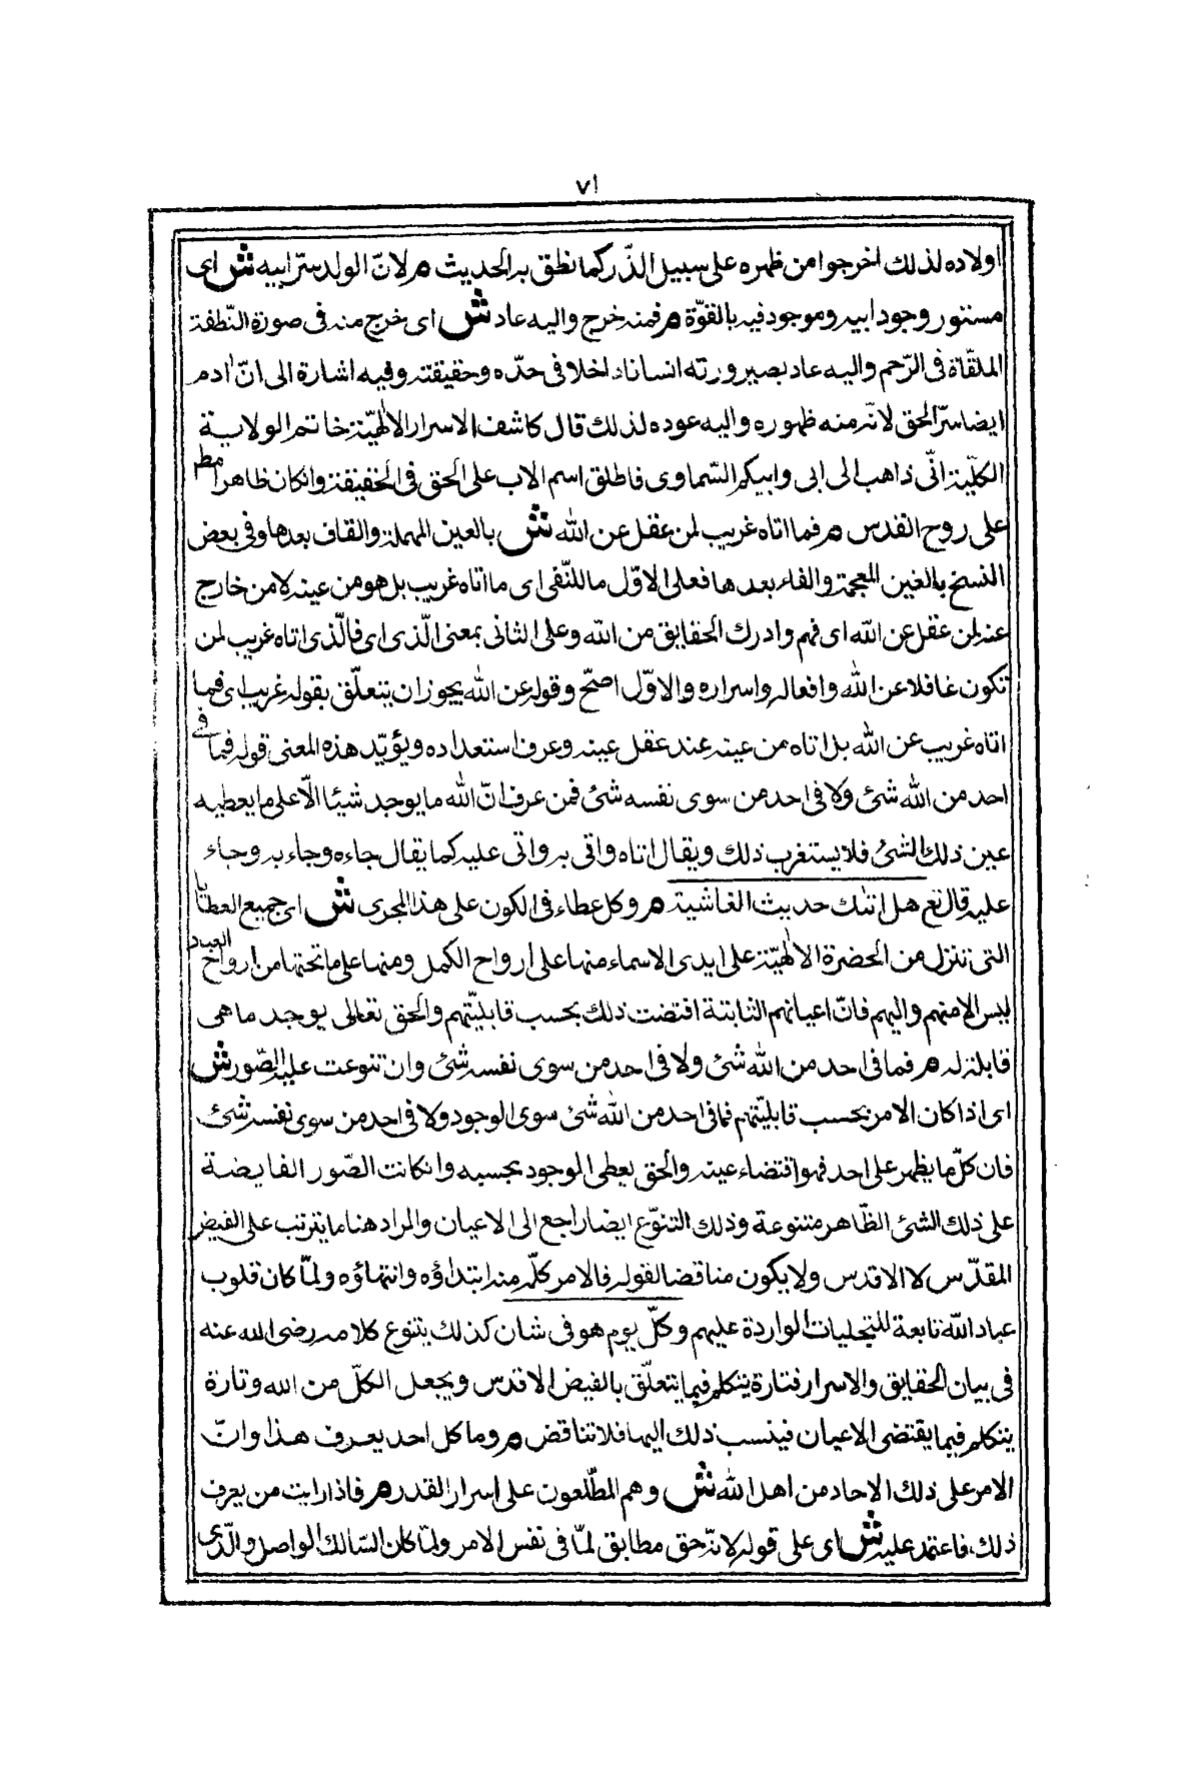 ٧١
اولاده لذلك اخرجوا من ظهره على سبيل الذّر كما نطق به الحديث م لانّ الولد سرّ ابيه ش اى
مستور وجود ابيه وموجود فيه بالقوّة م فمنه خرج واليه عاد ش اى خرج منه فى صورة النّطفة
الملقاة فى الرّحم واليه عاد بصيرورته انسانا داخلا فى حدّه وحقيقته وفيه اشارة الى انّ ادم
ايضا سرّ الحق لانّه منه ظهوره واليه عوده لذلك قال كاشف الاسرار الالهيّة خاتم الولاية
الكلّية انّى ذاهب الى ابى وابيكم السّماوى فاطلق اسم الاب على الحق فى الحقيقة وانكان ظاهرا
على روح القدس م فما اتاه غريب لمن عقل عن الله ش بالعين المهملة والقاف بعدها وفى بعض
النسخ بالغين المعجمة والفاء بعدها فعلى الاوّل ما للنّفى اى ما اتاه غريب بل هو من عينه لا من خارج
عنه لمن عقل عن الله اى فهم وادرك الحقايق من الله وعلى الثانى بمعنى الّذى اى فالّذى اتاه غريب لمن
تكون غافلا عن الله وافعاله واسراره والاوّل اصحّ وقوله عن الله يجوز ان يتعلّق بقوله غريب اى فما
اتاه غريب عن الله بل اتاه من عينه عند عقل عينه وعرف استعداده ويؤيّد هذه المعنى قوله فما فى
احد من الله شئ ولا فى احد من سوى نفسه شئ فمن عرف انّ الله ما يوجد شيئا الّا على ما يعطيه
عين ذلك الشئ فلا يستغرب ذلك ويقال اتاه واتى به واتى عليه كما يقال جاءه وجاء به وجاء
عليه قال تع هل اتٰك حديث الغاشية م وكل عطاء فى الكون على هذا المجرى ش اى جميع العطايا
التى تتنزل من الحضرة الالهيّة على ايدى الاسماء منها على ارواح الكمل ومنها على ما تحتها من ارواح العباد
ليس الا منهم واليهم فانّ اعيانهم الثابتة اقتضت ذلك بحسب قابليّتهم والحق تعالى يوجد ما هى
قابلة له م فما فى احد من الله شئ ولا فى احد من سوى نفسه شئ وان تنوعت عليه الصّور ش
اى اذا كان الامر بحسب قابليّتهم فما فى احد من الله شئ سوى الوجود ولا فى احد من سوى نفسه شئ
فان كلّ ما يظهر على احد فهو اقتضاء عينه والحق يعطى الوجود بحسبه وانكانت الصّور الفايضة
على ذلك الشئ الظّاهر متنوعة وذلك التنوّع ايضا راجع الى الاعيان والمراد هنا ما يترتب على الفيض
المقدّس لا الاقدس ولا يكون مناقضا لقوله فالامر كلّه منه ابتداؤه وانتهاؤه ولمّا كان قلوب
عباد الله تابعة للتجليات الواردة عليهم وكلّ يوم هو فى شان كذلك يتنوع كلامه رضى الله عنه
فى بيان الحقايق والاسرار فتارة يتكلم فيما يتعلّق بالفيض الاقدس ويجعل الكلّ من الله وتارة
يتكلم فيما يقتضى الاعيان فينسب ذلك اليها فلا تناقض م وما كل احد يعرف هذا وانّ
الامر على ذلك الا احاد من اهل الله ش وهم المطّلعون على اسرار القدر م فاذا رايت من يعرف
ذلك فاعتمد عليه ش اى على قوله لانّه حق مطابق لمّا فى نفس الامر ولمّا كان السّالك الواصل والّذى